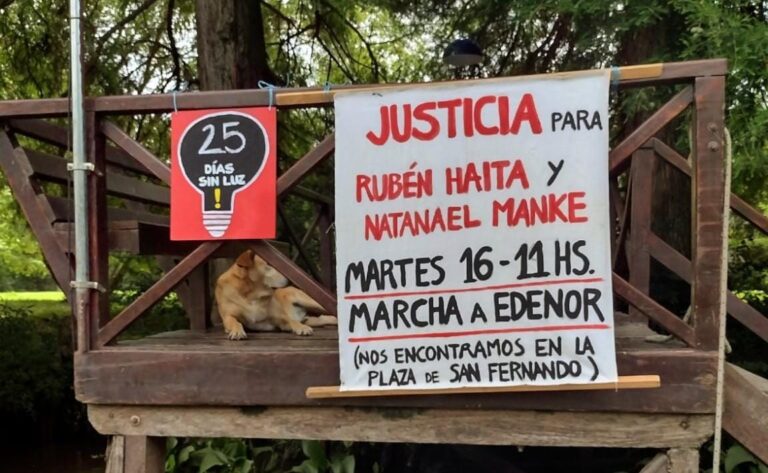 25
DÍAS
SIN LUZ
!
JUSTICIA PARA
RUBÉN HAITA Y
NATANAEL MANKE
MARTES 16-11 HS.
MARCHA A EDENOR
(NOS ENCONTRAMOS EN LA
PLAZA DE SAN FERNANDO)